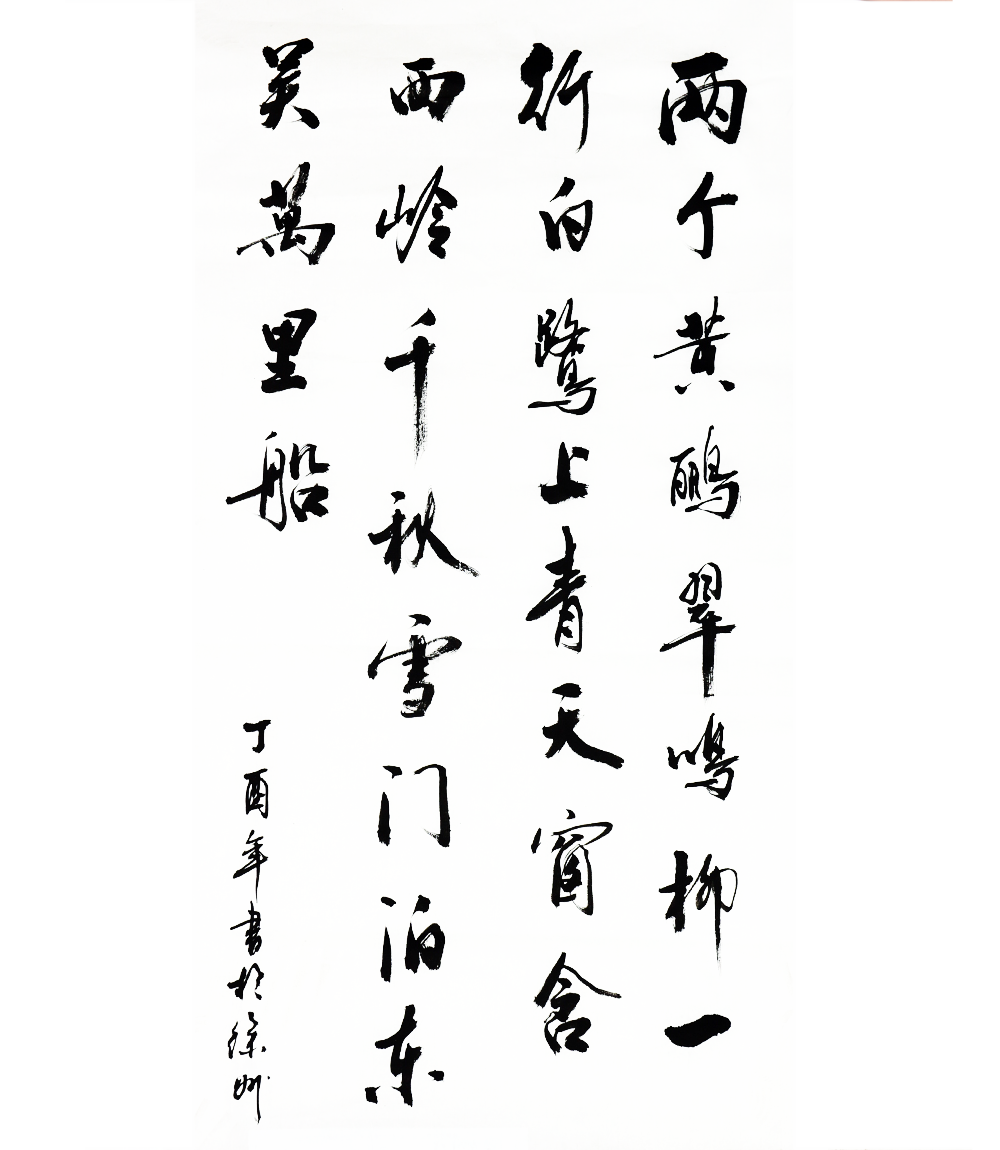 两个黄鹂翠鸣柳一
行白鹭上青天窗含
西岭千秋雪门泊东
吴萬里船
丁酉年書於徐州